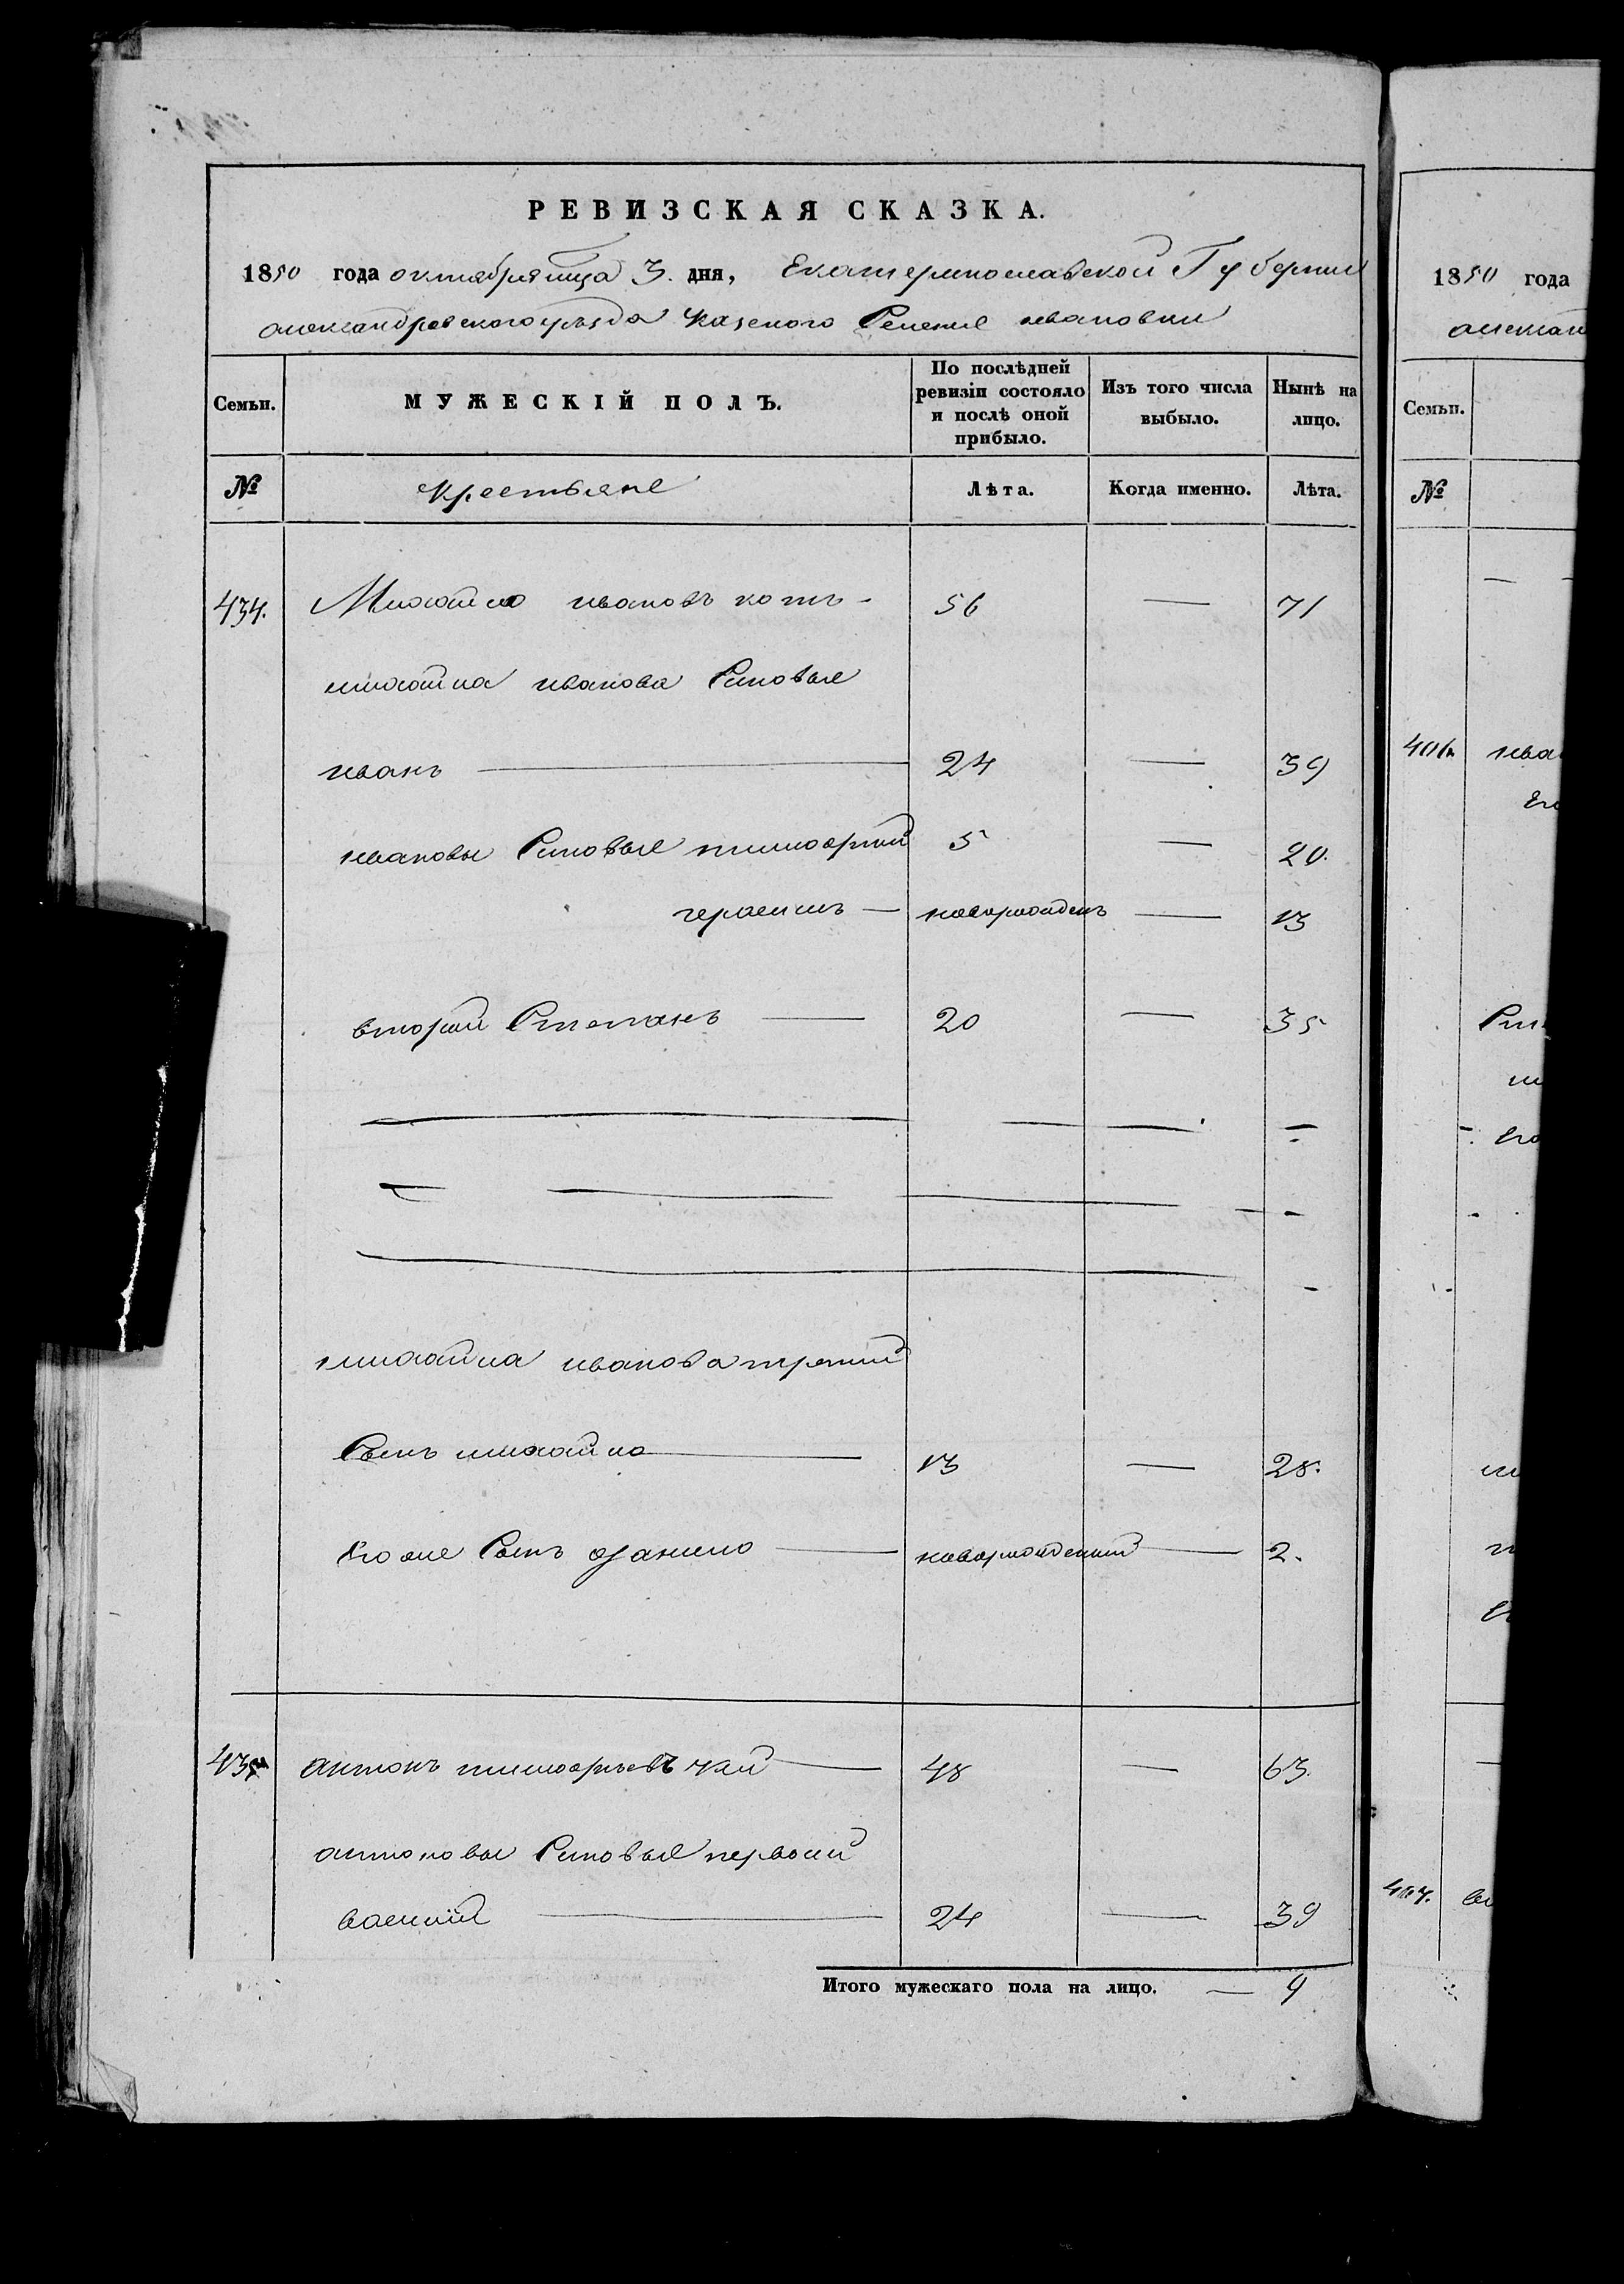 РЕВИЗСКАЯ СКАЗКА.
1850 года октября мца 3. дня, Екатеринославской Губернии
александровского уѣзда Казеного Селение ивановки
Семьи. МУЖЕСКІЙ ПОЛЪ. По послѣдней ревизіи состояло и послѣ оной прибыло. Изъ того числа выбыло. Нынѣ на лицо.
№ Крестьяне Лѣта. Когда именно. Лѣта.
434. Михайло ивановъ котъ - 56 — 71
михайла иванова Синовья
иванъ — 24 — 39
ивановы Синовья тимофей 5 — 20.
герасимъ — новорожденъ — 13
вторий Степанъ — 20 — 35
михайла иванова третий
Сынъ михайло — 13 — 28.
Его же Сынъ данило — новорожденний — 2.
435 антонъ тимофѣевъ — 48 — 63.
антоновы Синовья первый
василий — 24 — 39
Итого мужескаго пола на лицо. — 9
1850 года
алексан
Семьи.
№
406. ива
Его
Сте
Его
407.